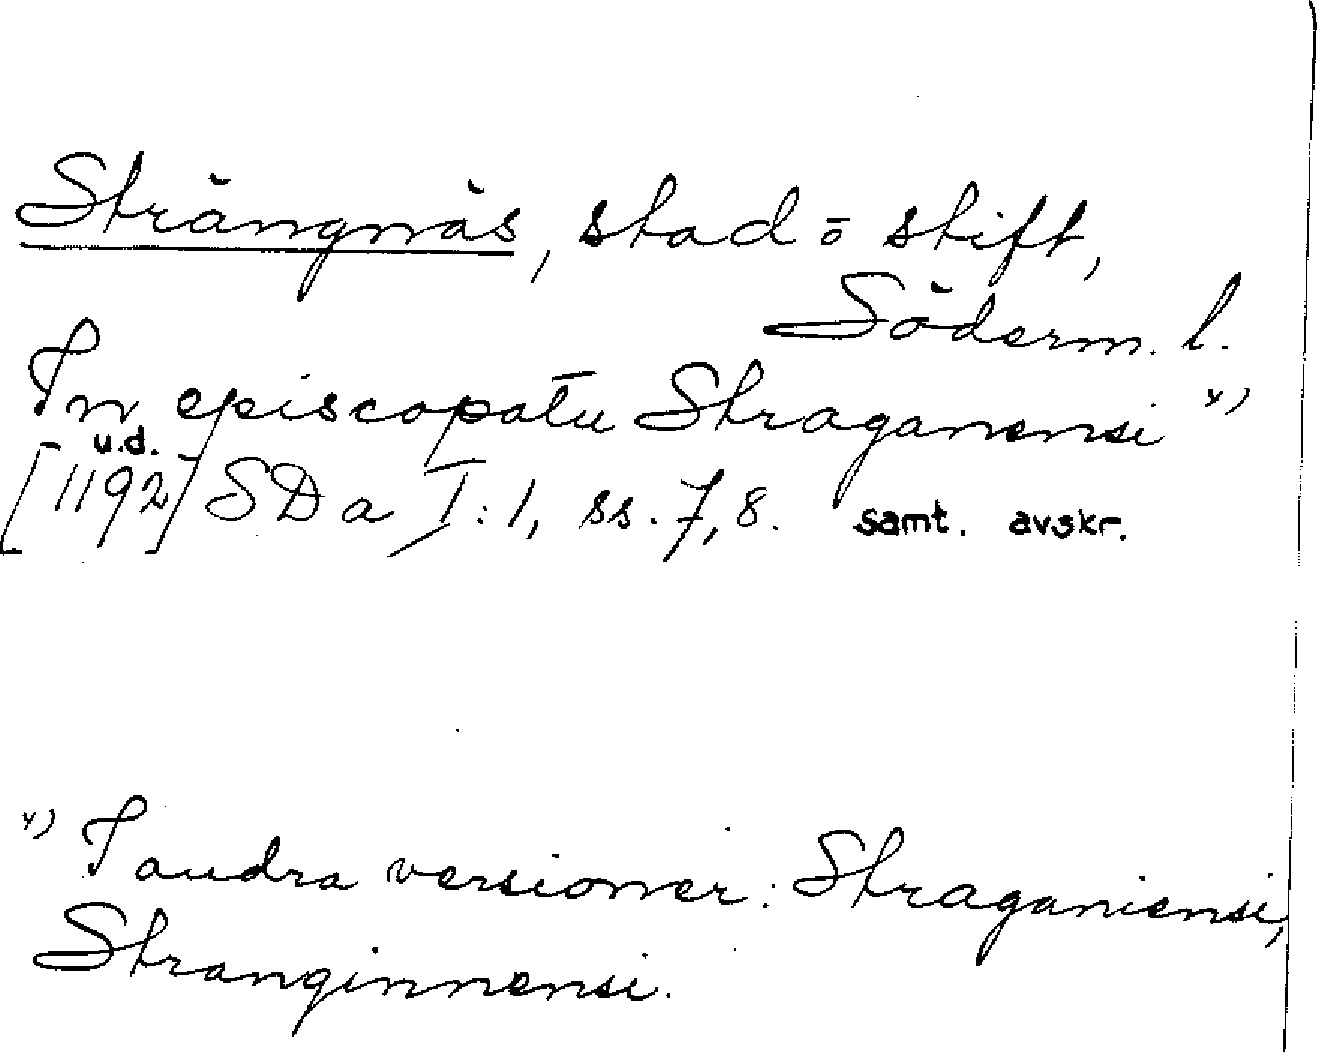 Strängnäs, stad o stift,
Söderm. l.
In episcopatu Straganensi x)
[u.d. 1192] SD a I:1, ss. 7, 8. samt. avskr.
x) I andra versioner: Straganiensi,
Stranginnensi.